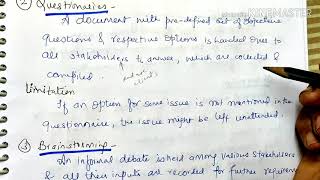 ② Questionaries →
Made with KINEMASTER
A document with pre-defined set of objective
questions & respective options is handed over to
all stakeholders to answer, which are collected &
compiled.
Limitation
If an option for some issue is not mentioned in the
questionnaire, the issue might be left unattended.
③ Brainstorming →
An informal debate is held among various stakeholders
& all their inputs are recorded for further requirement